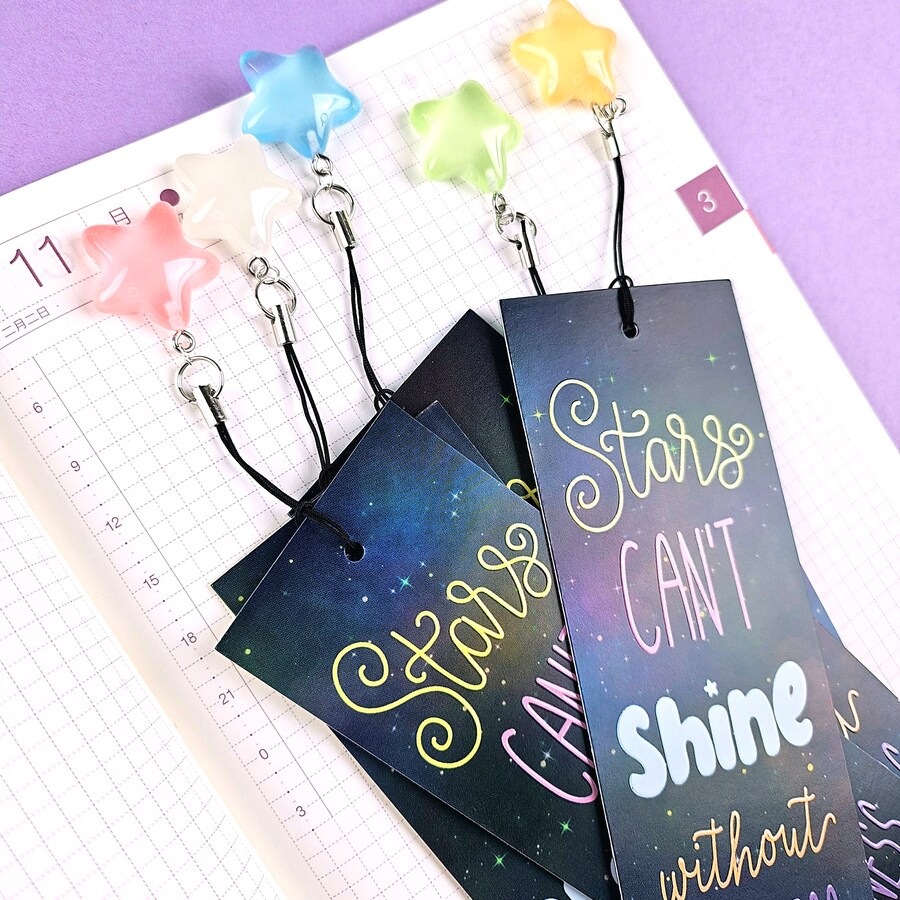 11
月
二月二日
6
9
12
15
18
21
0
3
3
Stars
CAN'T
Shine
without
Stars